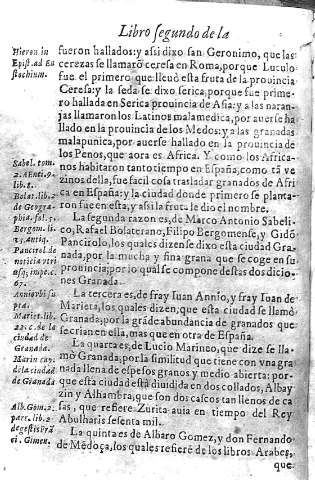 Libro segundo de la
Hieron in
Epist. ad Eu
stochium.
fueron hallados: y assi dixo san Geronimo, que las
cerezas se llamarō ceresa en Roma, porque Luculo
fue el primero que lleuò esta fruta de la prouincia
Ceresa: y la seda se dixo serica, porque fue prime-
ro hallada en Serica prouincia de Asia: y a las naran-
jas llamaron los Latinos malamedica, por auerse ha-
llado en la prouincia de los Medos: y a las granadas
malapunica, por auerse hallado en la prouincia de
los Penos, que aora es Africa. Y como los Africa-
nos habitaron tanto tiempo en España, como tā ve
zinos della, fue facil cosa trasladar granados de Afri
ca en España: y la ciudad donde primero se planta-
ron fue en esta, y assi la fruta le dio el nombre.
Sabel. tom.
2. Aenti. 9.
lib. 8.
Bolat. lib. 2
de Geogra-
phia. fol. 5.
Bergom. li.
15. antiq.
Pancirol de
noticia vtri
usq; impe. c.
67.
La segunda razon es, de Marco Antonio Sabeli-
co, Rafael Bolaterano, Filipo Bergomense, y Gidō
Pancirolo, los quales dizen se dixo esta ciudad Gra-
nada, por la mucha y fina grana que se coge en su
prouincia; por lo qual se compone destas dos dicio-
nes Granada.
Mariet. lib.
22. c. de la
ciudad de
Granada.
La tercera es, de fray Iuan Annio, y fray Iuan de
Marieta, los quales dizen, que esta ciudad se llamò
Granada, por la grāde abundancia de granados que
se crian en ella, mas que en otra de España.
de la ciudad
de Granada
La quarta es, de Lucio Marineo, que dize se lla-
mò Granada, por la similitud que tiene con vna gra
nada llena de espesos granos y medio abierta: por-
que esta ciudad està diuidida en dos collados, Albay
zin y Alhambra, que son dos cascos tan llenos de ca
sas, que refiere Zurita auia en tiempo del Rey
Abulharis sesenta mil.
Alb. Gom. 2.
part. lib. 2
de gestis Frā
ci. Ximen.
La quinta es de Albaro Gomez, y don Fernando
de Mēdoça, los quales refiere de los libros Arabes,
que